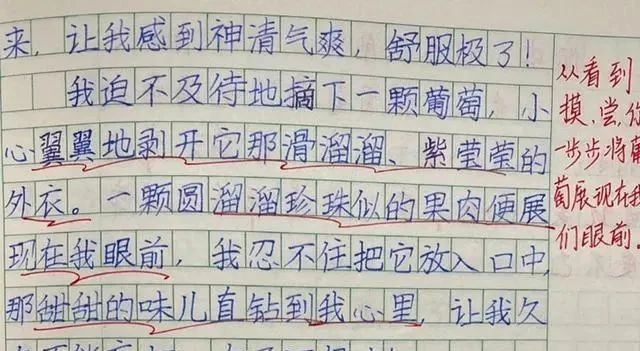 来，让我感到神清气爽，舒服极了！
我迫不及待地摘下一颗葡萄，小
心翼翼地剥开它那滑溜溜、紫莹莹的
外衣。一颗圆溜溜珍珠似的果肉便展
现在我眼前，我忍不住把它放入口中，
那甜甜的味儿直钻到我心里，让我久
从看到
摸、尝，你
一步步将葡
萄展现在我
们眼前。